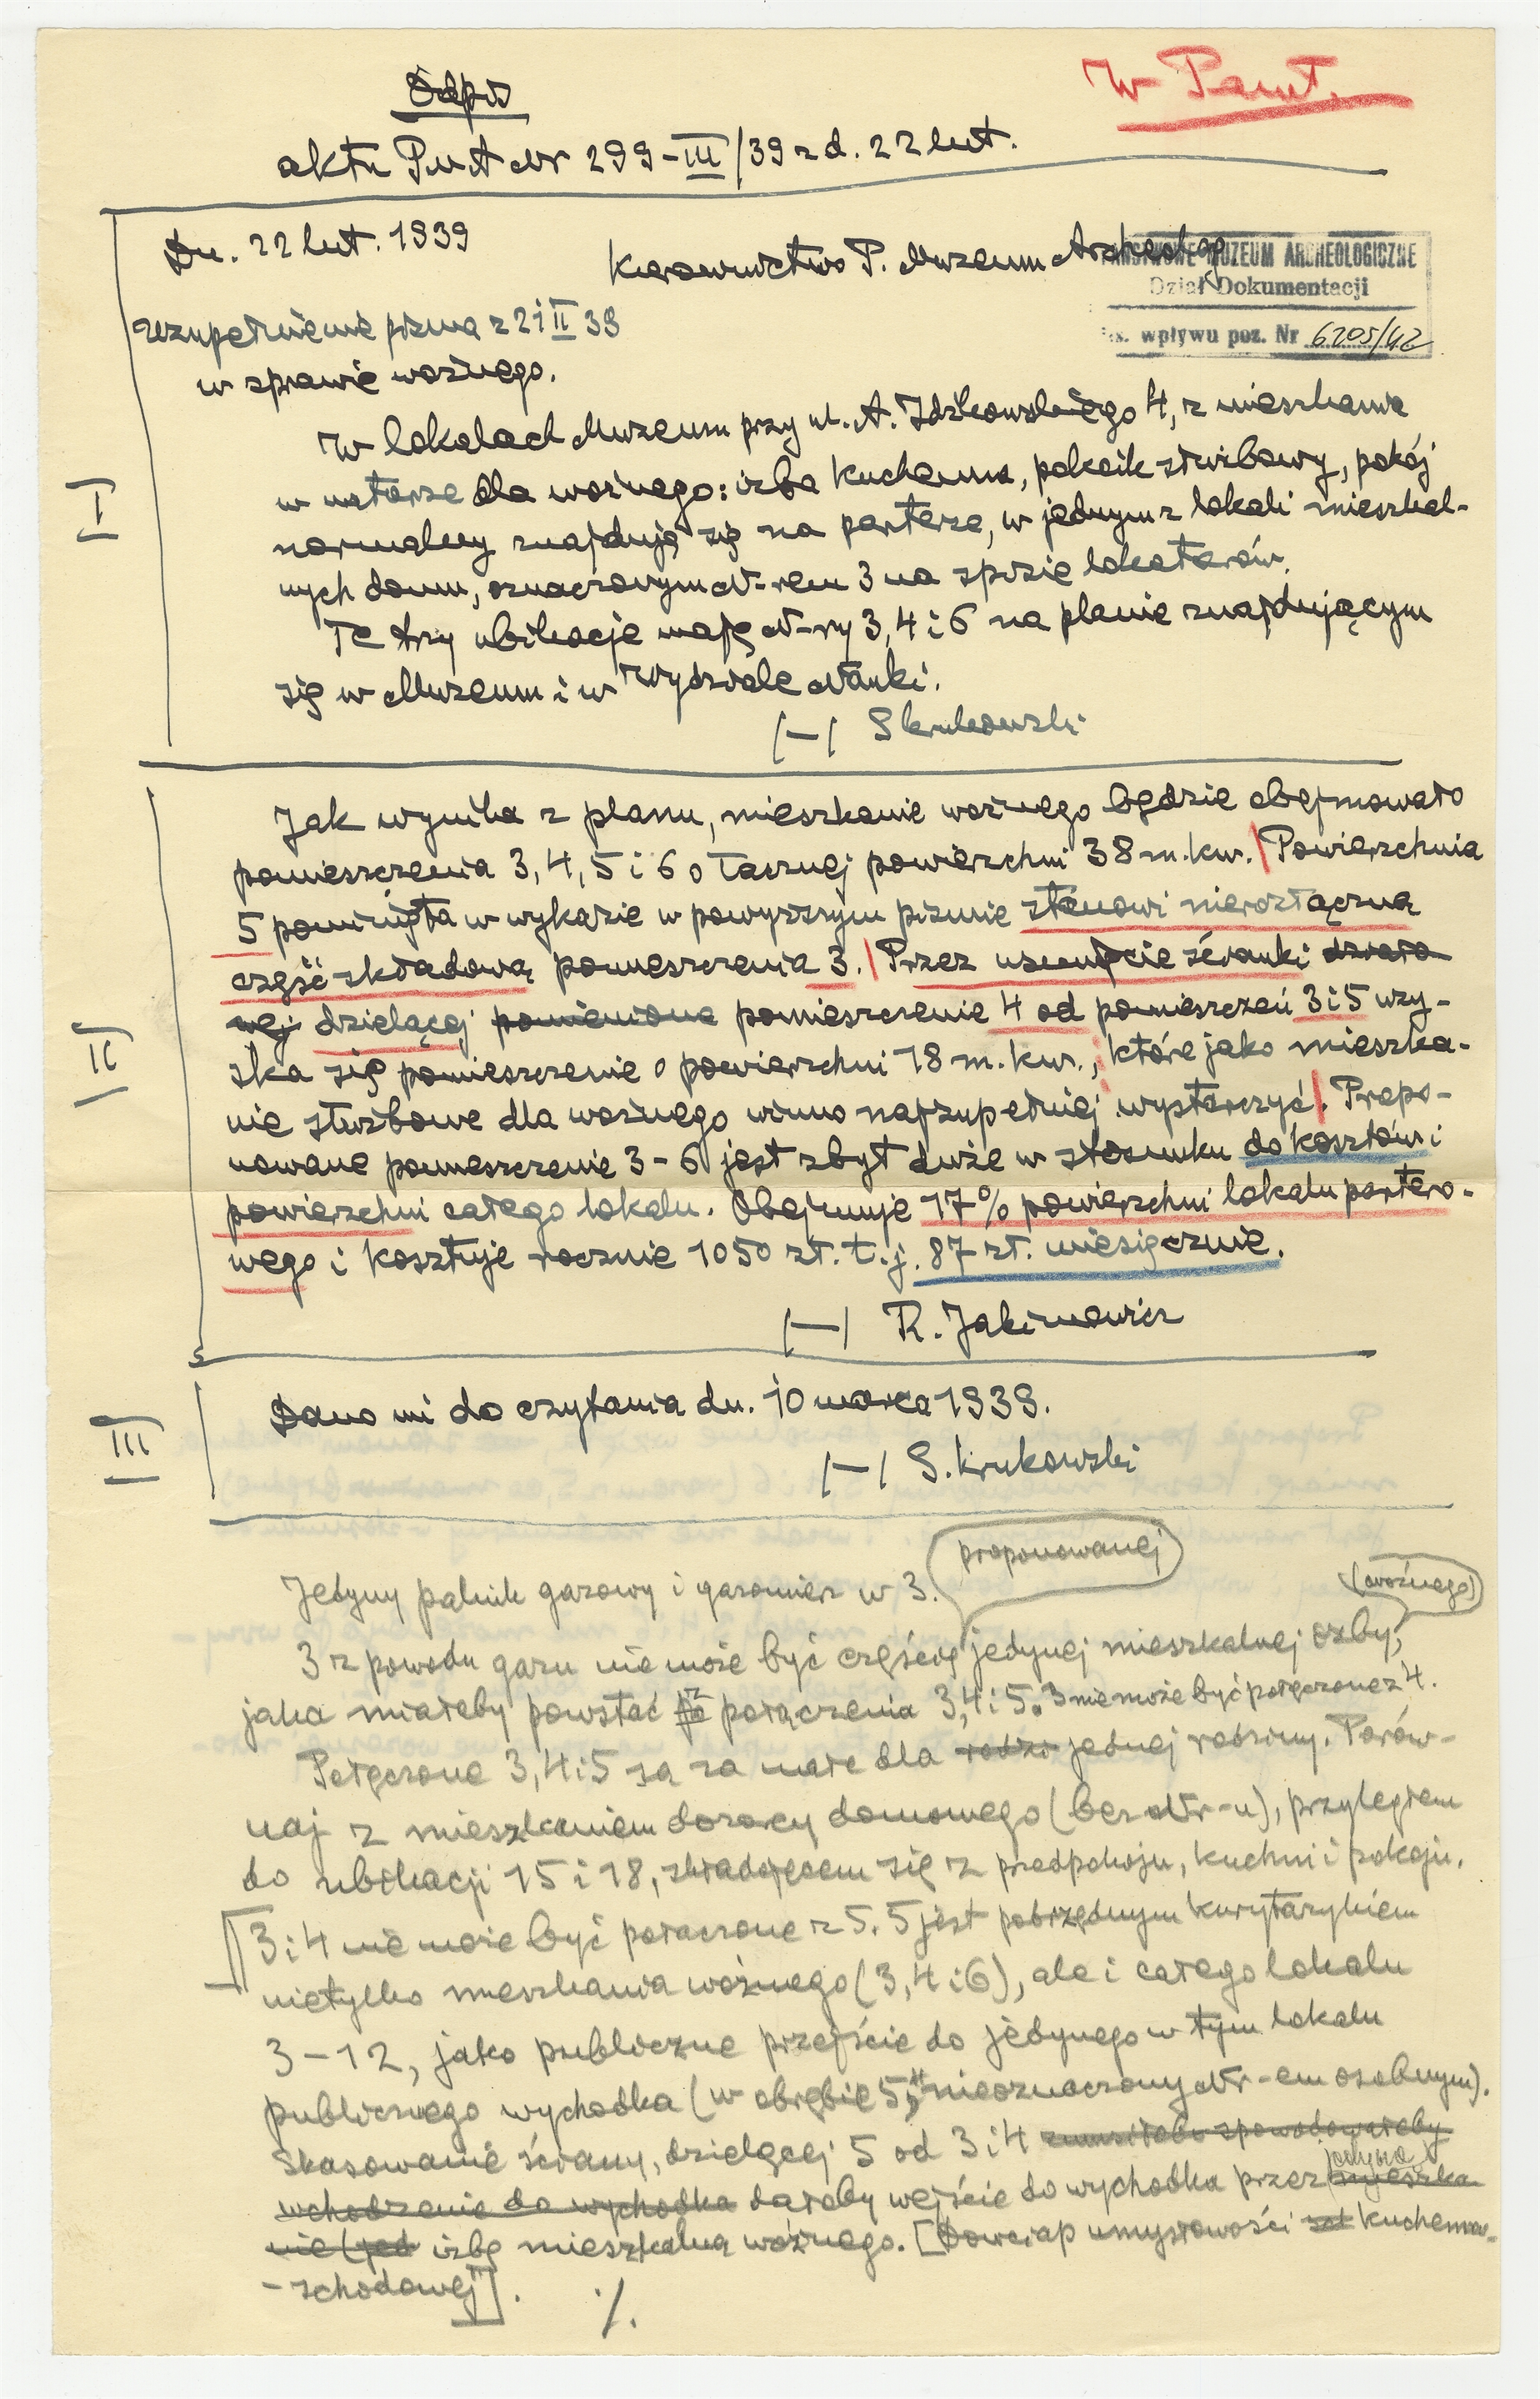 W Pamt.
Odpis
aktu PMA Nr 299-III/39 z d. 22 lut.
Dn. 22 lut. 1939
Kierownictwo P. Muzeum Archeolog
PAŃSTWOWE MUZEUM ARCHEOLOGICZNE
Dział Dokumentacji
Ks. wpływu poz. Nr 6205/42
uzupełnienie pisma z 21 II 39
w sprawie woźnego.
I
W lokalach Muzeum przy ul. A. Idzikowskiego 4, z mieszkania
w naturze dla woźnego: izba kuchenna, pokoik służbowy, pokój
normalny znajdują się na parterze, w jednym z lokali mieszkal-
nych domu, oznaczonym N-rem 3 na spisie lokatorów.
Te trzy ubikacje mają N-ry 3, 4 i 6 na planie znajdującym
się w Muzeum i w Wydziale Nauki.
/—/ S Krukowski
II
Jak wynika z planu, mieszkanie woźnego będzie obejmowało
pomieszczenia 3, 4, 5 i 6 o łącznej powierzchni 38 m. kw. Powierzchnia
5 pominięta w wykazie w powyższym piśmie stanowi nierozłączną
część składową pomieszczenia 3. Przez usunięcie ścianki działo
wej dzielącej pomienione pomieszczenie 4 od pomieszczeń 3 i 5 uzy-
ska się pomieszczenie o powierzchni 18 m. kw., które jako mieszka-
nie służbowe dla woźnego winno najzupełniej wystarczyć. Propo-
nowane pomieszczenie 3-6 jest zbyt duże w stosunku do kosztów i
powierzchni całego lokalu. Obejmuje 17% powierzchni lokalu partero-
wego i kosztuje rocznie 1050 zł. t. j. 87 zł. miesięcznie.
/—/ R. Jakimowicz
III
Dano mi do czytania dn. 10 marca 1939.
/—/ S. Krukowski
Jedyny palnik gazowy i gazomierz w 3.
proponowanej
(woźnego)
3 z powodu gazu nie może być częścią jedynej mieszkalnej izby,
jaka miałaby powstać z połączenia 3, 4 i 5. 3 nie może być połączone z 4.
Połączone 3, 4 i 5 są za małe dla rodzi jednej rodziny. Porów-
naj z mieszkaniem dozorcy domowego (bez Nr-u), przyległem
do ubikacji 15 i 18, składającem się z przedpokoju, kuchni i pokoju.
3 i 4 nie może być połączone z 5. 5 jest pobrzędnym kurytarzykiem
nietylko mieszkania woźnego (3, 4 i 6), ale i całego lokalu
3-12, jako publiczne przejście do jedynego w tym lokalu
publicznego wychodka (w obrębie 5, nieoznaczony Nr-em osobnym).
Skasowanie ściany, dzielącej 5 od 3 i 4 spowodowałoby
wchodzenie do wychodka dałoby wejście do wychodka przez mieszka
jedyną
nie (jed izbę mieszkalną woźnego. [Dowcip umysłowości kuchenno-
-schodowej].
./.